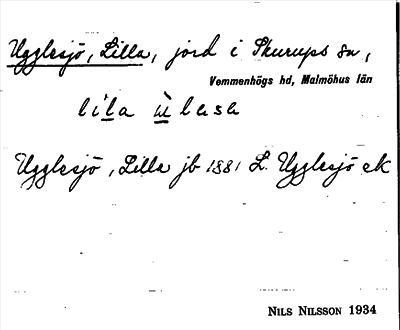 Ugglesjö, Lilla, jord i Skurups sn,
Vemmenhögs hd, Malmöhus län
lila
Ugglesjö, Lilla jb 1881 L. Ugglesjö ek
NILS NILSSON 1934